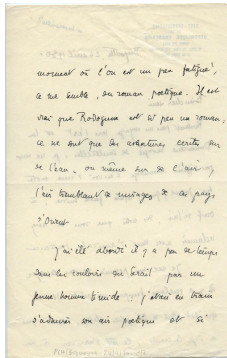 moment où l'on est un peu fatigué,
ce me semble, du roman poétique. Il est
vrai que Rodogune est si peu un roman :
ce ne sont que des aventures écrites sur
de l'eau — ou même sur de l'air,
l'air tremblant de mirages de ces pays
d'Orient.
J'ai été abordé il y a peu de temps
dans les couloirs du Sérail par un
jeune homme timide. J'étais en train
d'admirer son air poétique et si